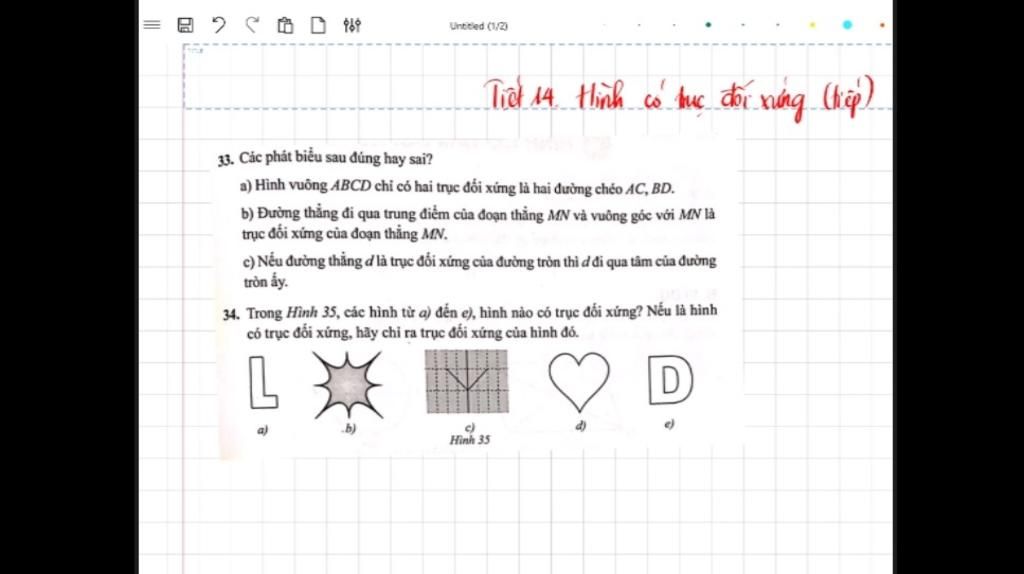 Untitled (1/2)
TITLE
Tiết 14. Hình có trục đối xứng (tiếp)
33. Các phát biểu sau đúng hay sai?
a) Hình vuông ABCD chỉ có hai trục đối xứng là hai đường chéo AC, BD.
b) Đường thẳng đi qua trung điểm của đoạn thẳng MN và vuông góc với MN là
trục đối xứng của đoạn thẳng MN.
c) Nếu đường thẳng d là trục đối xứng của đường tròn thì d đi qua tâm của đường
tròn ấy.
34. Trong Hình 35, các hình từ a) đến e), hình nào có trục đối xứng? Nếu là hình
có trục đối xứng, hãy chỉ ra trục đối xứng của hình đó.
L D
a) b) c) d) e)
Hình 35